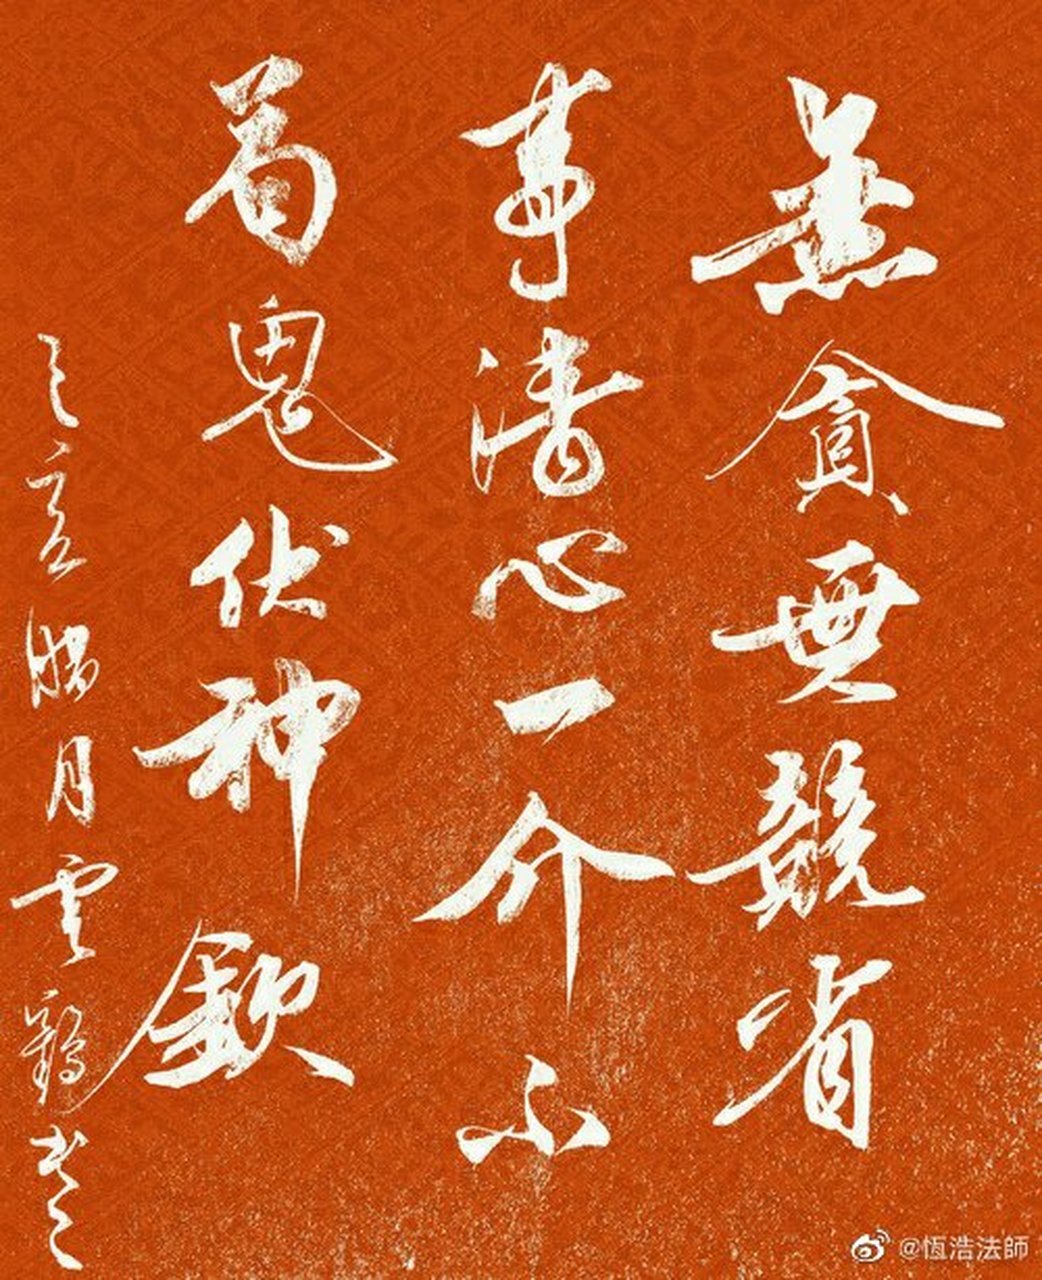 無貪無競省
事清心一介不
苟鬼伏神欽
乙亥臘月雲鶴書
@恆浩法師